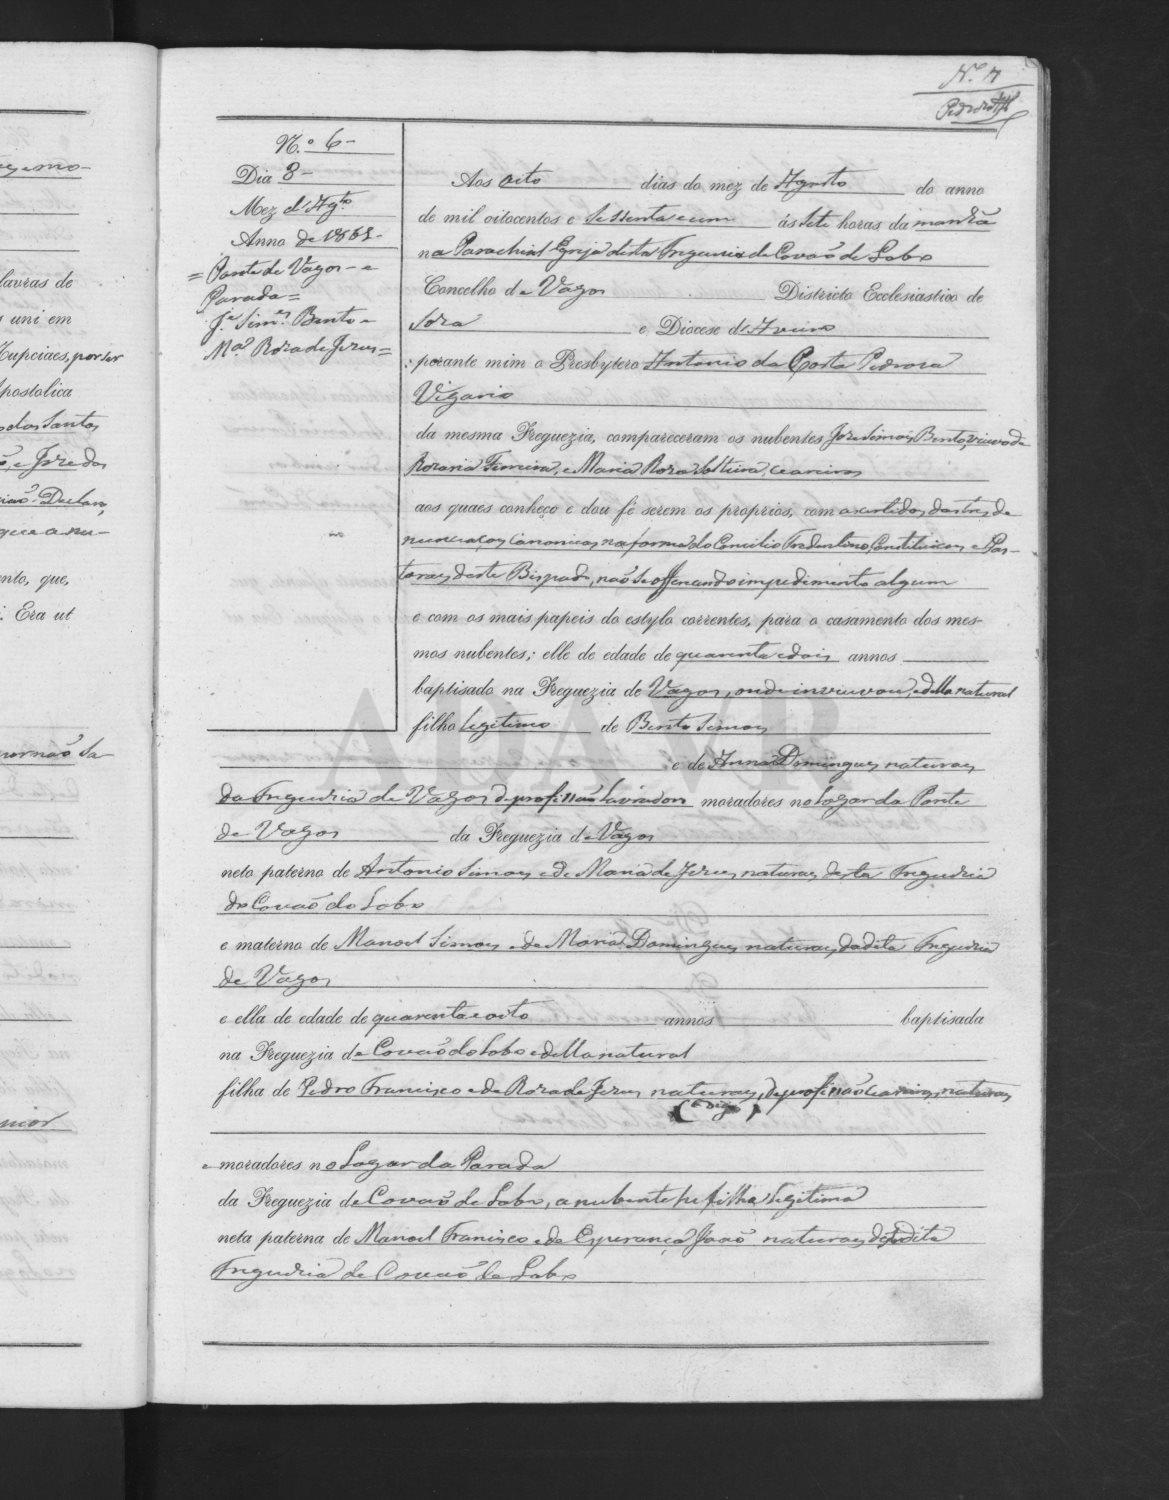 N.º 7
Pedrosa
N.º 6
Dia 8
Mez d'Agto
Anno de 1861
= Ponte de Vagos - e
Parada =
Je Simes Bento e
Ma Rosa de Jesus =
Aos oito dias do mez de Agosto do anno
de mil oitocentos e sessenta e um ás sete horas da manhã
na Parochial Egreja desta Freguezia de Covaõ do Lobo
Concelho de Vagos Districto Ecclesiastico de
Sora e Diocese d'Aveiro
perante mim o Presbytero Antonio da Costa Pedrosa
Vigario
da mesma Freguezia, compareceram os nubentes Jose Simoes Bento, viuvo de
Rosaria Ferreira, e Maria Rosa Solteira, ceareiros
aos quaes conheço e dou fé serem os proprios, com as certidoes das tres de
nunciaçoes canonicas na forma do Concilio Tredentino, Constituicoes e Pas-
toraes deste Bispado, naõ se offerecendo impedimento algum
e com os mais papeis do estylo correntes, para o casamento dos mes-
mos nubentes; elle de edade de quarenta e dois annos
baptisado na Freguezia de Vagos, onde inviuvou, e della natural
filho legitimo de Bento Simoes
e de Anna Domingues naturaes
da Freguezia de Vagos de profissaõ Lavradores moradores no Logar da Ponte
de Vagos da Freguezia de Vagos
neto paterno de Antonio Simoes e de Maria de Jesus naturaes desta Freguezia
de Covaõ do Lobo
e materno de Manoel Simoes e de Maria Domingues naturaes da dita Freguezia
de Vagos
e ella de edade de quarenta e oito annos baptisada
na Freguezia de Covaõ do Lobo e della natural
filha de Pedro Francisco e de Rosa de Jesus naturaes, de profissaõ ceareiros, naturaes
(digo)
e moradores no Logar da Parada
da Freguezia de Covaõ do Lobo, a nubente he filha legitima
neta paterna de Manoel Francisco e de Esperança Joaõ naturaes da dita
Freguezia de Covaõ do Lobo
ADAVR
lavras de
s uni em
Nupciaes, por ser
Apostolica
dos Santos
e Jose dos
Declaro,
que a nu-
nto, que,
: Era ut